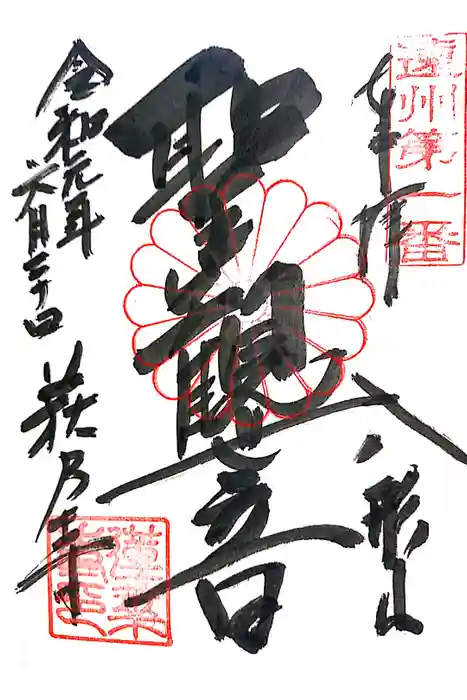 遠州第一番
奉拝
八形山
聖観世音
令和元年
六月二十四
萩乃寺
蓮華
寺印